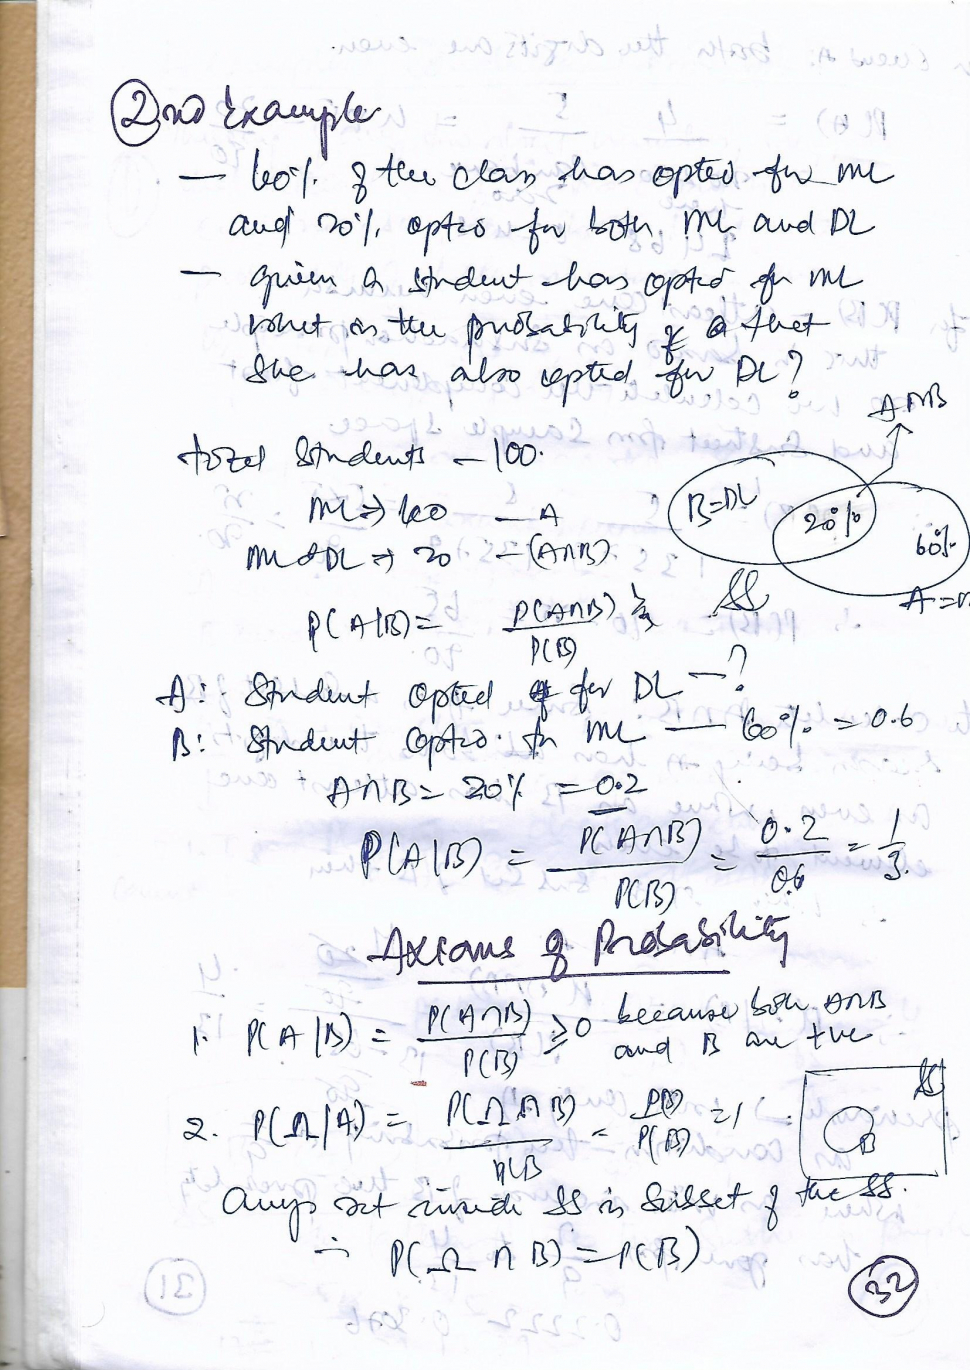 2nd Example
— 60% of the class has opted for ML
and 20% opted for both ML and DL
— given a student has opted for ML
what is the probability of that
she has also opted for DL?
A∩B
total Students – 100.
ML ⇒ 60 – A
B=DL
20%
60%
ML & DL ⇒ 20 – (A∩B).
SS
A = m
P(A|B) = P(A∩B) / P(B)
A: Student opted for DL — ?
B: Student opted for ML — 60% = 0.6
A∩B = 20% = 0.2
P(A|B) = P(A∩B) / P(B) = 0.2 / 0.6 = 1/3.
Axioms of Probability
1. P(A|B) = P(A∩B) / P(B) ≥ 0 because both A∩B
and B are +ve
SS
B
2. P(Ω|A) = P(Ω∩B) / P(B = P(B) / P(B) = 1
Any set inside SS is subset of the SS.
∴ P(Ω ∩ B) = P(B)
32
31